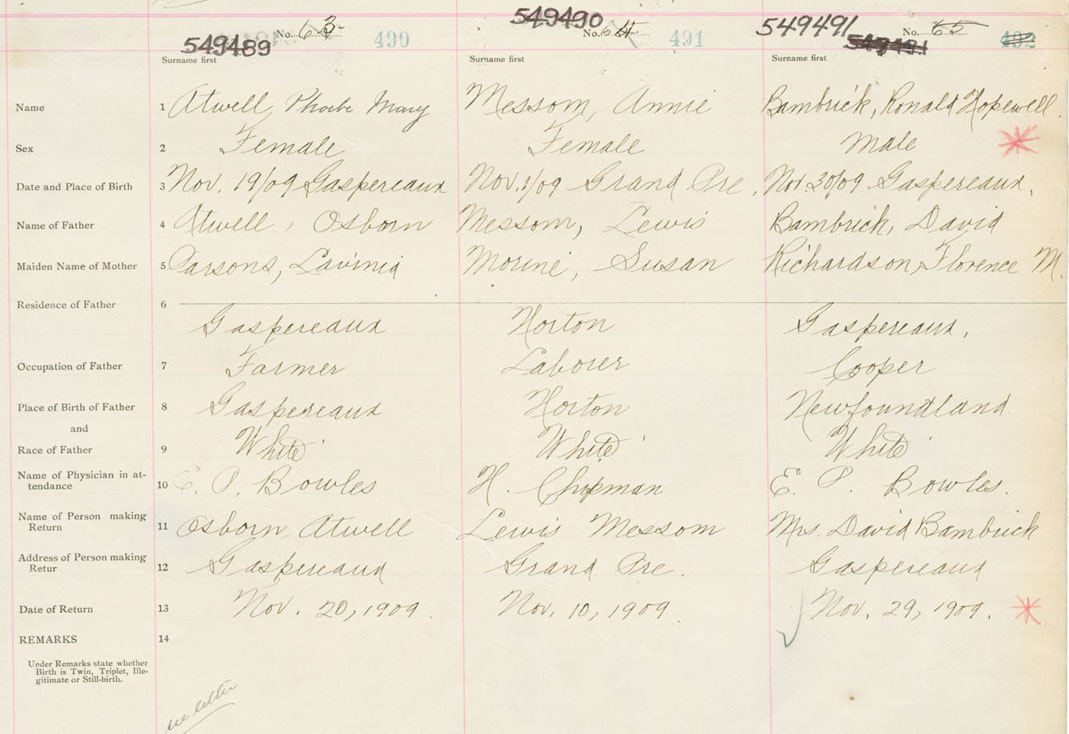 549489 No. 63 490 549490 No. 64 491 549491 549491 No. 65 492
Surname first Surname first Surname first
Name 1 Atwell, Phoebe Mary Messom, Annie Bambrick, Ronald Hopewell.
Sex 2 Female Female Male
Date and Place of Birth 3 Nov. 19/09 Gaspereaux Nov. 1/09 Grand Pre, Nov. 30/09 Gaspereaux,
Name of Father 4 Atwell, Osborn Messom, Lewis Bambrick, David
Maiden Name of Mother 5 Parsons, Lavinia Morine, Susan Richardson, Florence M.
Residence of Father 6
Gaspereaux Horton Gaspereaux,
Occupation of Father 7 Farmer Laborer Cooper
Place of Birth of Father 8 Gaspereaux Horton Newfoundland.
and
Race of Father 9 White White White
Name of Physician in at-
tendance 10 E. P. Bowles H. Chipman E. P. Bowles.
Name of Person making
Return 11 Osborn Atwell Lewis Messom Mrs. David Bambrick
Address of Person making
Retur 12 Gaspereaux Grand Pre. Gaspereaux
Date of Return 13 Nov. 20, 1909. Nov. 10, 1909. Nov. 29, 1909.
REMARKS 14
Under Remarks state whether
Birth is Twin, Triplet, Ille-
gitimate or Still-birth.
see letter